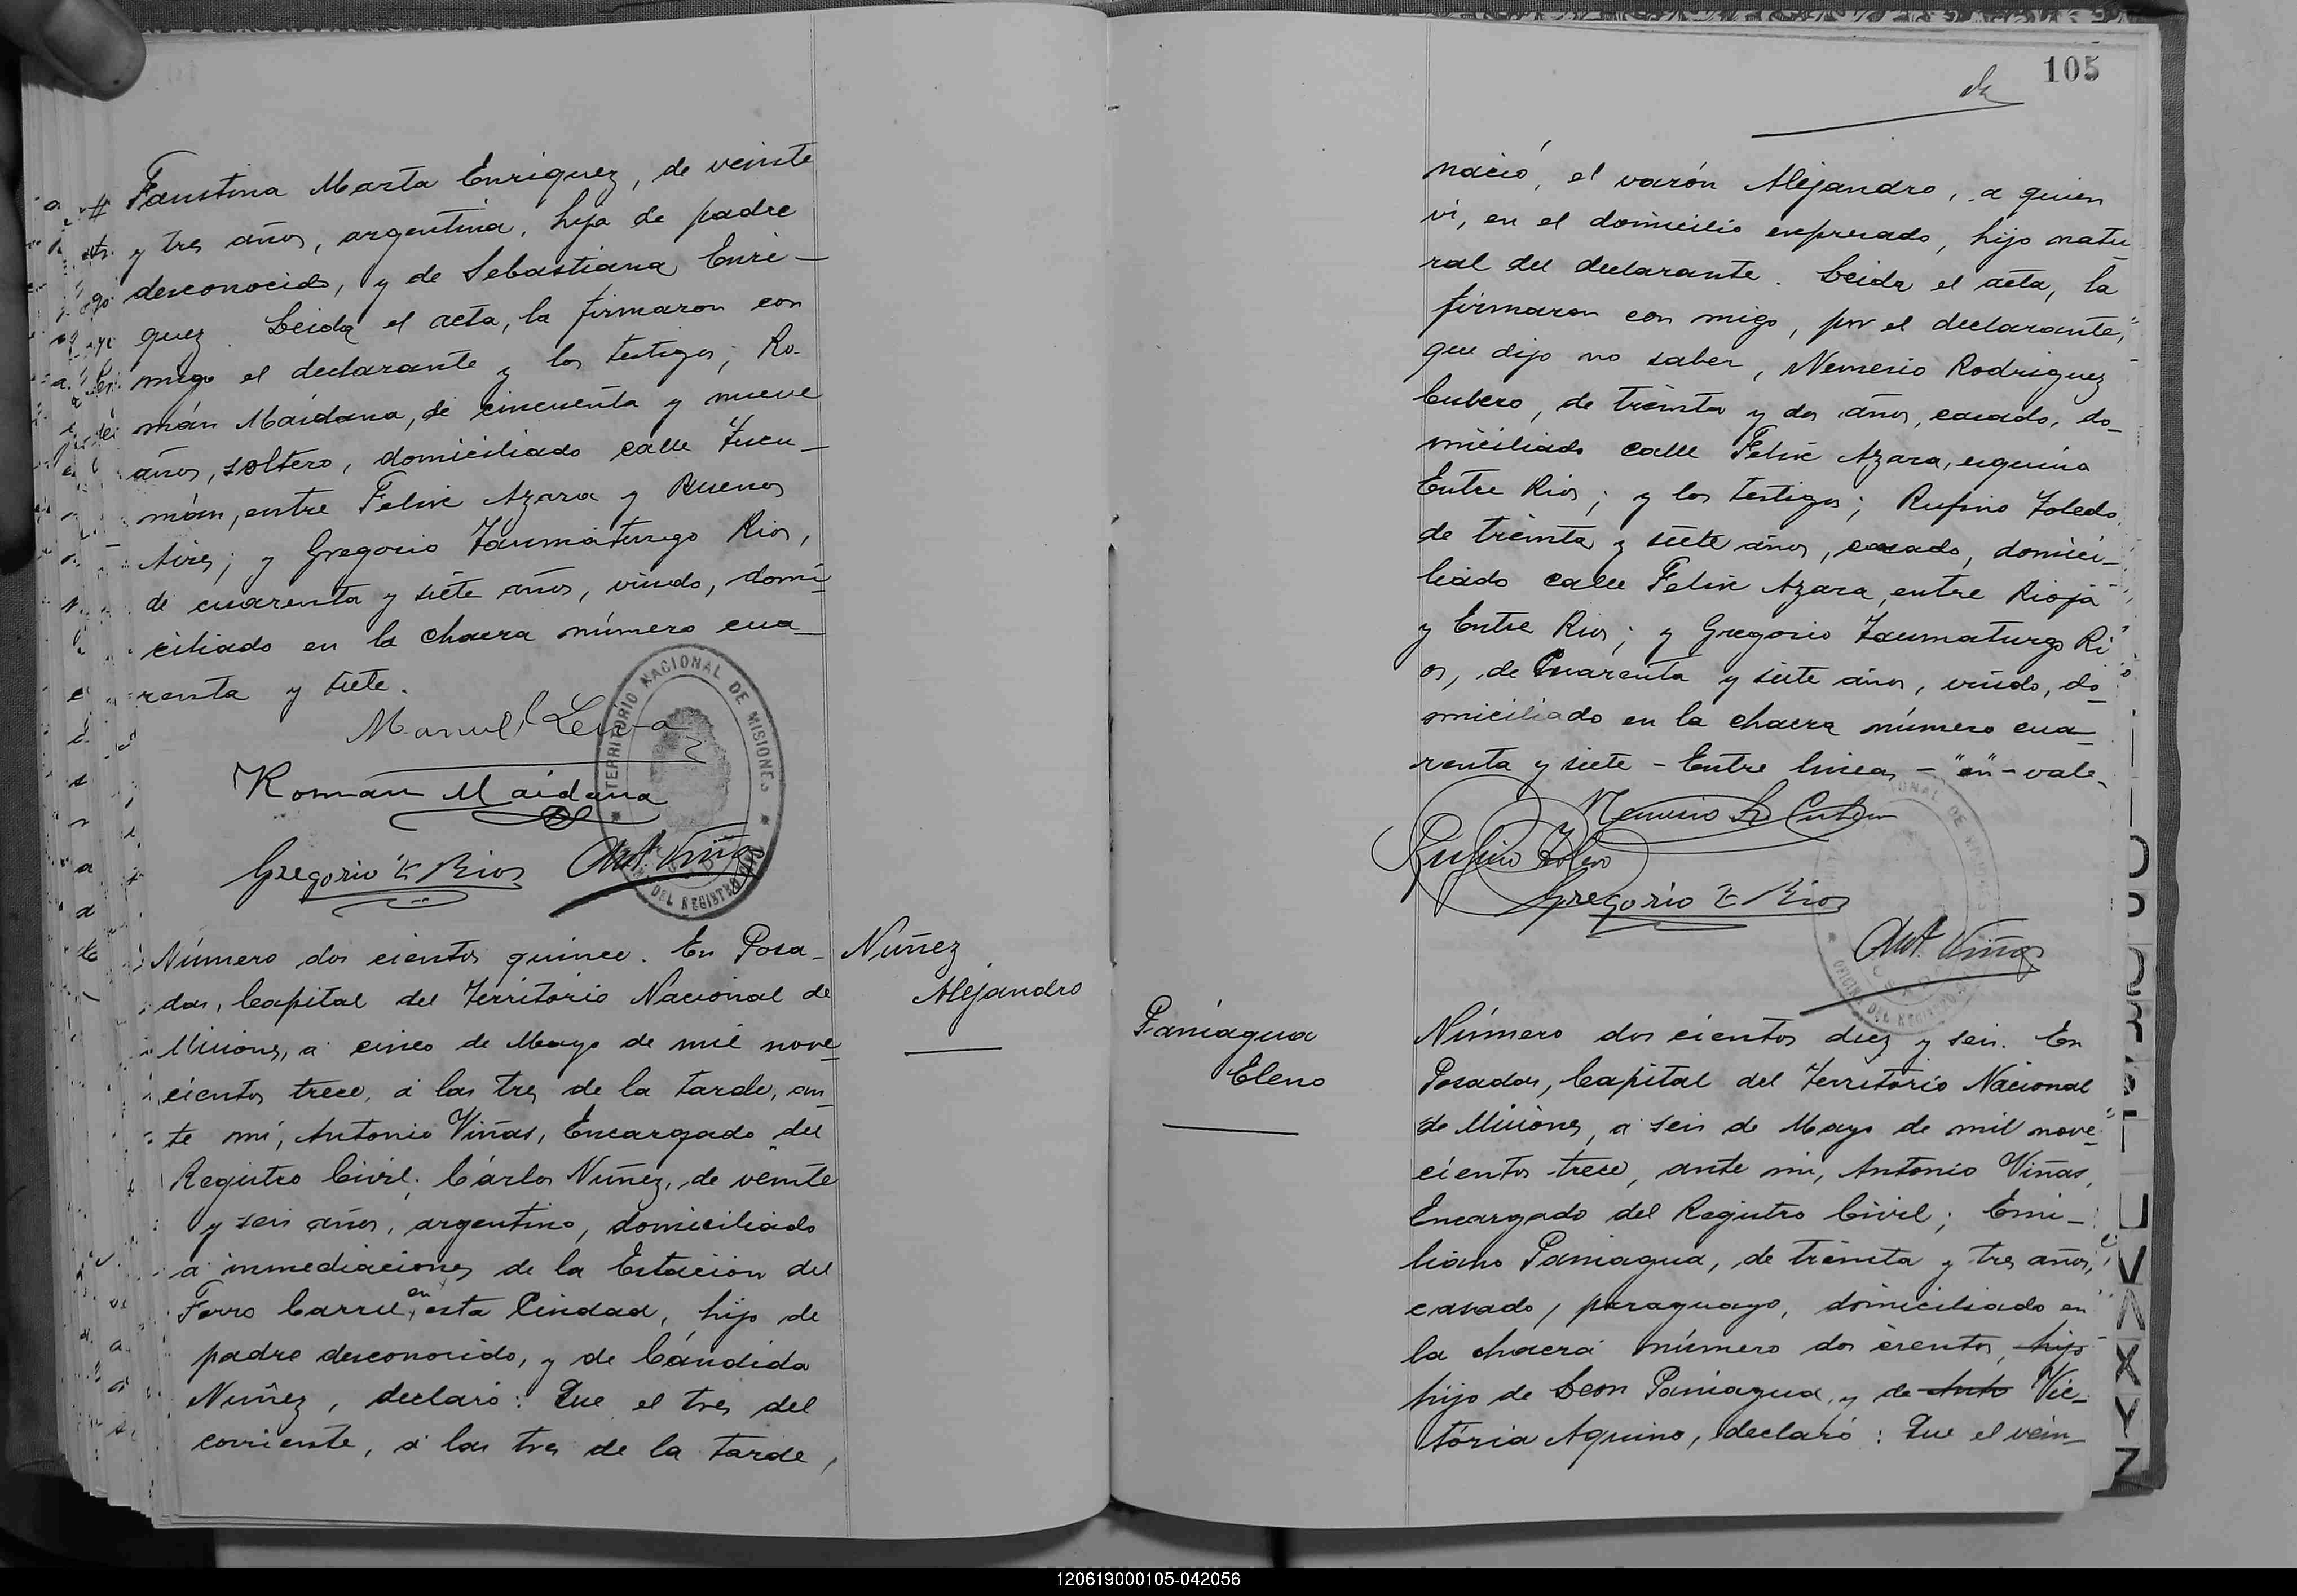 Faustina Marta Enriquez, de veinte
y tres años, argentina, hija de padre
desconocido, y de Sebastiana Enri-
quez. Leida el acta, la firmaron con
migo el declarante y los testigos; Ro-
mán Maidana, de cincuenta y nueve
años, soltero, domiciliado calle Tucu-
mán, entre Felix Azara y Buenos
Aires; y Gregorio Taumaturgo Rios,
de cuarenta y siete años, viudo, domi-
ciliado en la chacra número cua-
renta y siete.
Manuel Leiva
Román Maidana
Gregorio T. Rios Ant. Viñas
TERRITORIO NACIONAL DE MISIONES
DEL REGISTRO
Número dos cientos quince. En Posa-
das, Capital del Territorio Nacional de
Misiones, a cinco de Mayo de mil nove-
cientos trece, á las tres de la tarde, an-
te mí, Antonio Viñas, Encargado del
Registro Civil; Cárlos Nuñez, de veinte
y seis años, argentino, domiciliado
a inmediaciones de la Estacion del
Ferro Carril, en esta Ciudad, hijo de
padre desconocido, y de Cándida
Nuñez, declaró: Que el tres del
corriente, á las tres de la tarde,
Nuñez
Alejandro
105
nació, el varón Alejandro, a quien
vi, en el domicilio expresado, hijo natu-
ral del declarante. Leida el acta, la
firmaron con migo, por el declarante,
que dijo no saber, Nemesio Rodriguez
Cubero, de treinta y dos años, casado, do-
miciliado calle Felix Azara, esquina
Entre Rios; y los testigos; Rufino Toledo,
de treinta y siete años, casado, domici-
liado calle Felix Azara, entre Rioja
y Entre Rios; y Gregorio Taumaturgo Ri-
os, de Cuarenta y siete años, viudo, do-
miciliado en la chacra número cua-
renta y siete - Entre lineas - "en" - vale-
Nemesio R. Cubero
Rufino Toledo
Gregorio T. Rios
Ant. Viñas
Paniagua
Eleno
Número dos cientos diez y seis. En
Posadas, Capital del Territorio Nacional
de Misiones, a seis de Mayo de mil nove-
cientos trece, ante mi, Antonio Viñas,
Encargado del Registro Civil; Emi-
liano Paniagua, de treinta y tres años,
casado, paraguayo, domiciliado en
la chacra número dos cientos, hijo
hijo de Leon Paniagua, y de Vic-
tória Aquino, declaró: Que el vein-
120619000105-042056